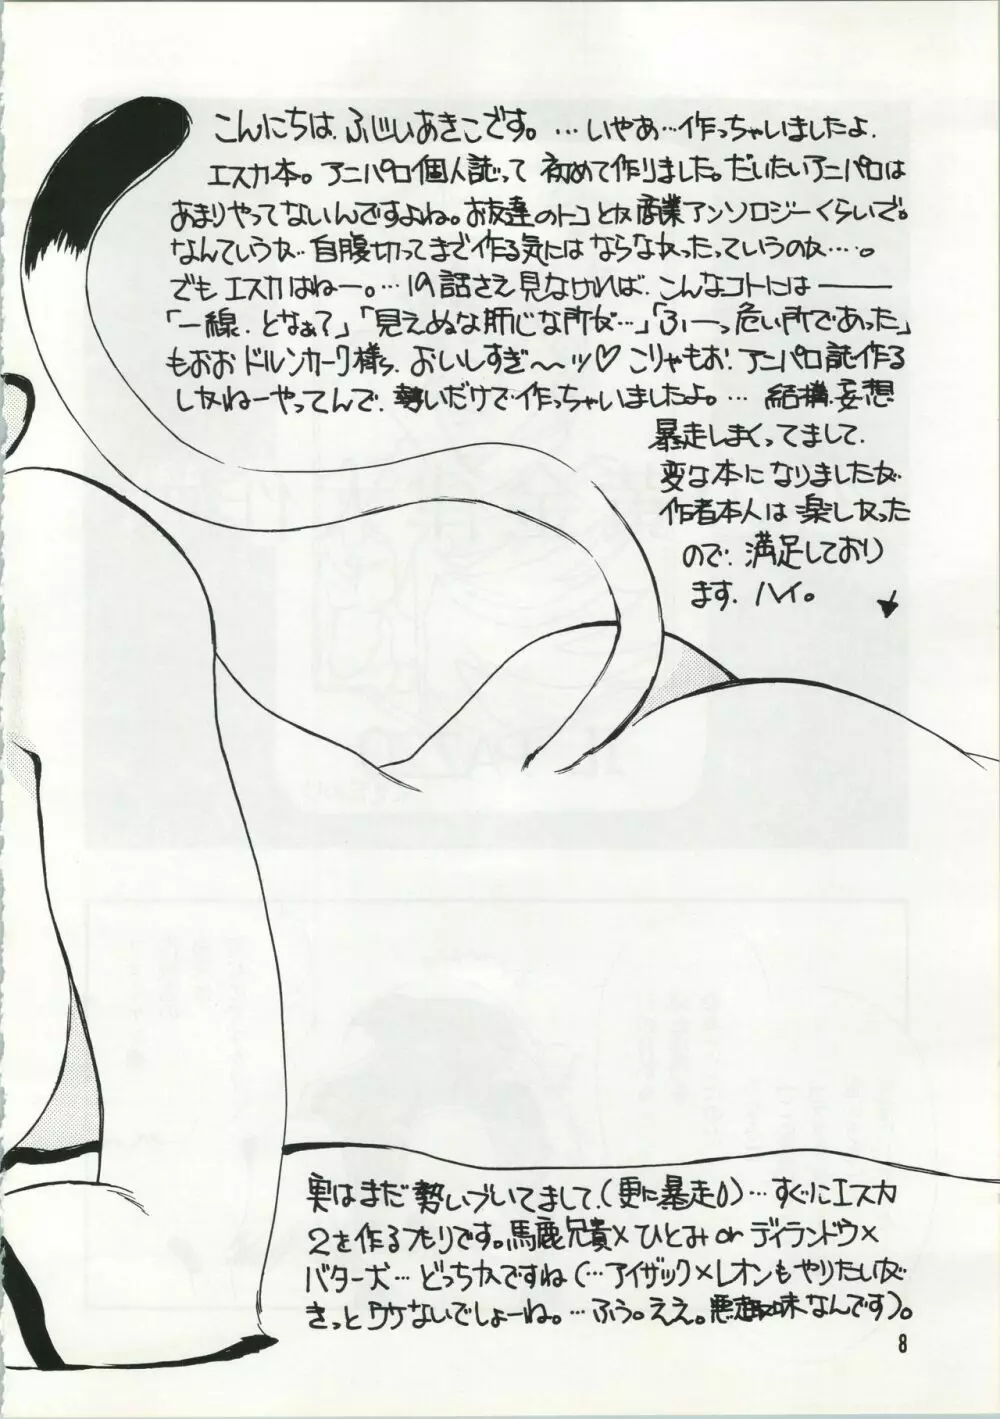 こんにちは、ふじいあきこです。…いやあ…作っちゃいましたよ、
エスカ本。アニパロ個人誌って 初めて作りました。だいたいアニパロは
あまりやってないんですよね。お友達のトコとか商業アンソロジーくらいで。
なんていうか…自腹切ってまで作る気にはならなかったっていうのか…。
でもエスカはねー。…19話さえ見なければ、こんなコトには———
「一線、となぁて」「見えぬな 肝じな所が…」「ふーっ危い所であった」
もおお ドルンカーク様ら、おいしすぎ〜ッ♡ こりゃもお、アニパロ誌作る
しかねーやってんで、勢いだけで作っちゃいましたよ。… 結構、妄想
暴走しまくってまして、
変な本になりましたが
作者本人は楽しかった
ので、満足しており
ます、ハイ。
実はまだ勢いづいてまして、(更に暴走〃)…すぐにエスカ
2を作るつもりです。馬鹿兄貴×ひとみ or ディランドウ×
バター犬…どっちかですね(…アイザック×レオンもやりたいが
きっとウケないでしょーね。…ふぅ。ええ。悪趣味なんです)。
8